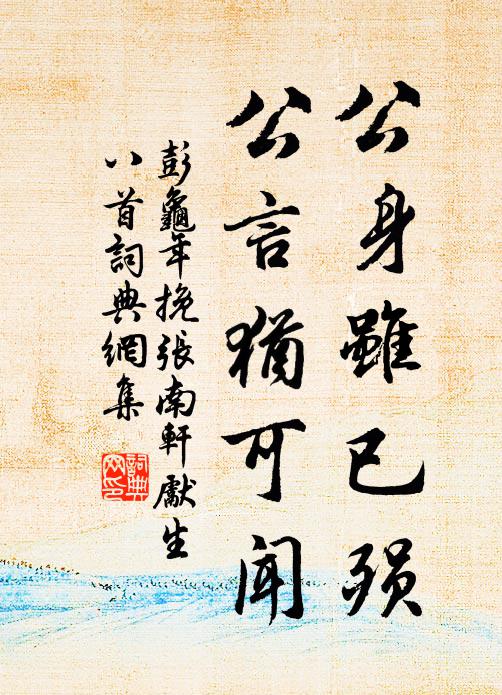 公身雖已殞
公言猶可聞
彭龜年挽張南軒獻生
八首詞典網集
詞典网印